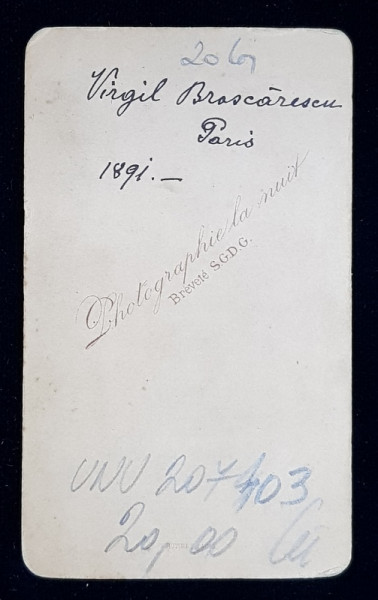 20 lei
Virgil Broscărescu
Paris
1891.—
Photographie la nuit
Breveté S.G.D.G.
UNU 207403
20,00 lei